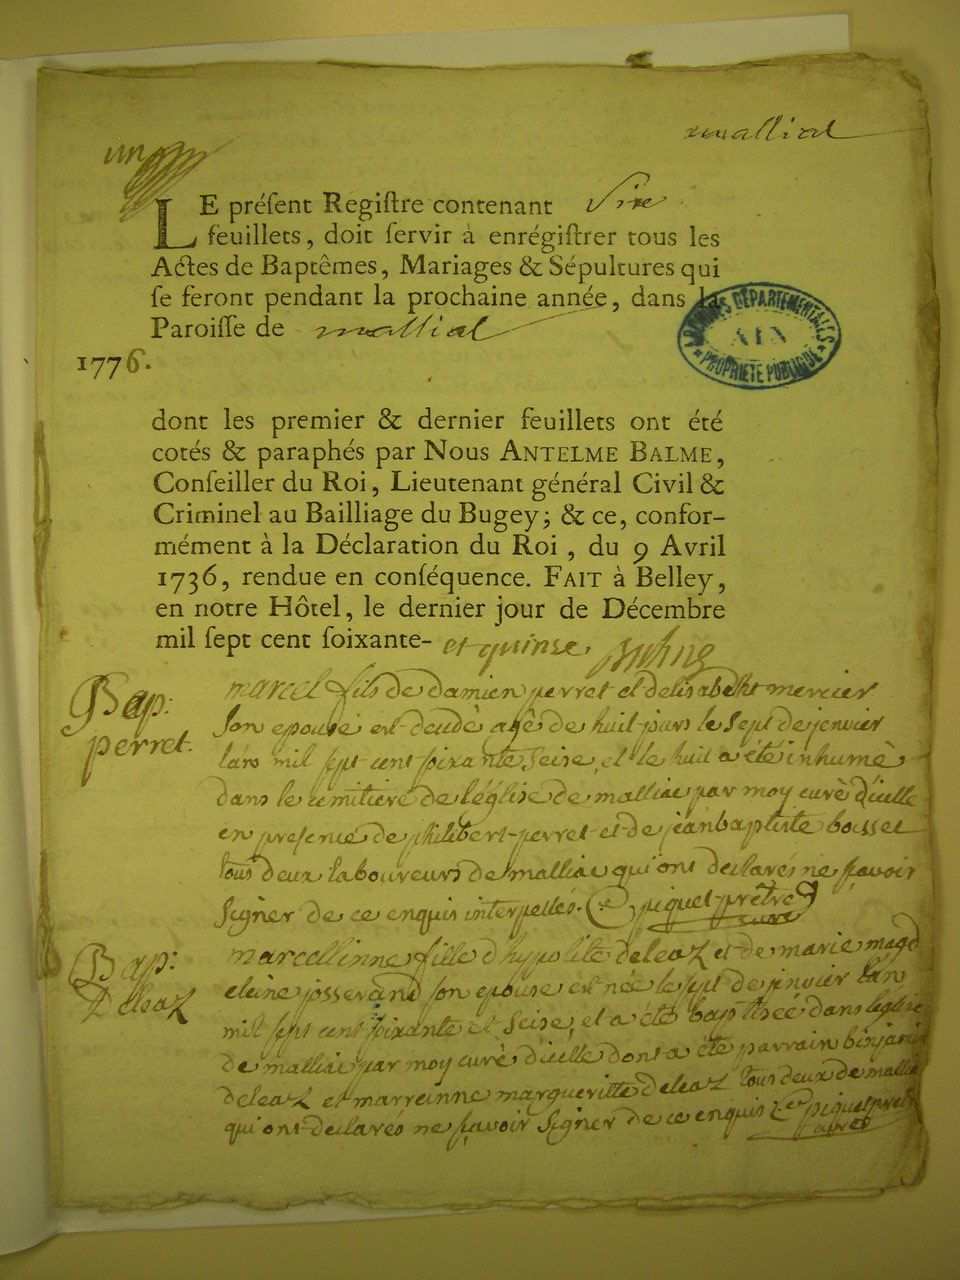 malliat
un
LE préſent Regiſtre contenant Sixe
feuillets, doit ſervir à enrégiſtrer tous les
Actes de Baptêmes, Mariages & Sépultures qui
ſe feront pendant la prochaine année, dans la
Paroiſſe de malliat
1776.
ARCHIVES DÉPARTEMENTALES
AIN
PROPRIÉTÉ PUBLIQUE
dont les premier & dernier feuillets ont été
cotés & paraphés par Nous ANTELME BALME,
Conſeiller du Roi, Lieutenant général Civil &
Criminel au Bailliage du Bugey; & ce, confor-
mément à la Déclaration du Roi, du 9 Avril
1736, rendue en conſéquence. FAIT à Belley,
en notre Hôtel, le dernier jour de Décembre
mil ſept cent ſoixante- et quinse,
Bap:
perret.
marcel fils de damien perret et delisabeht mercier
son epouse est decedè agè de huit jours le sept de jenvier
lan mil sept cent soixante seise, et le huit a été inhumè
dans le cemitiere de léglise de malliac par moy curè dicelle
en presence de philibert perret et de jean baptiste bosset
tous deux laboureurs de malliac qui ont declarés ne sçavoir
signer de ce enquis interpellés. piquet prêtre
curé
Bap:
Deleaz
marcellinne fille d'hypolite deleaz et de marie magd
eleine josserand son epouse est née le sept de jenvier lan
mil sept cent soixante et seise, et a été baptisée dans léglise
de malliac par moy curè dicelle dont a été parrain binjamin
deleaz et marreinne margueritte deleaz tous deux de malliac
qui ont declarés ne sçavoir signer de ce enquis piquet prêtre
curé